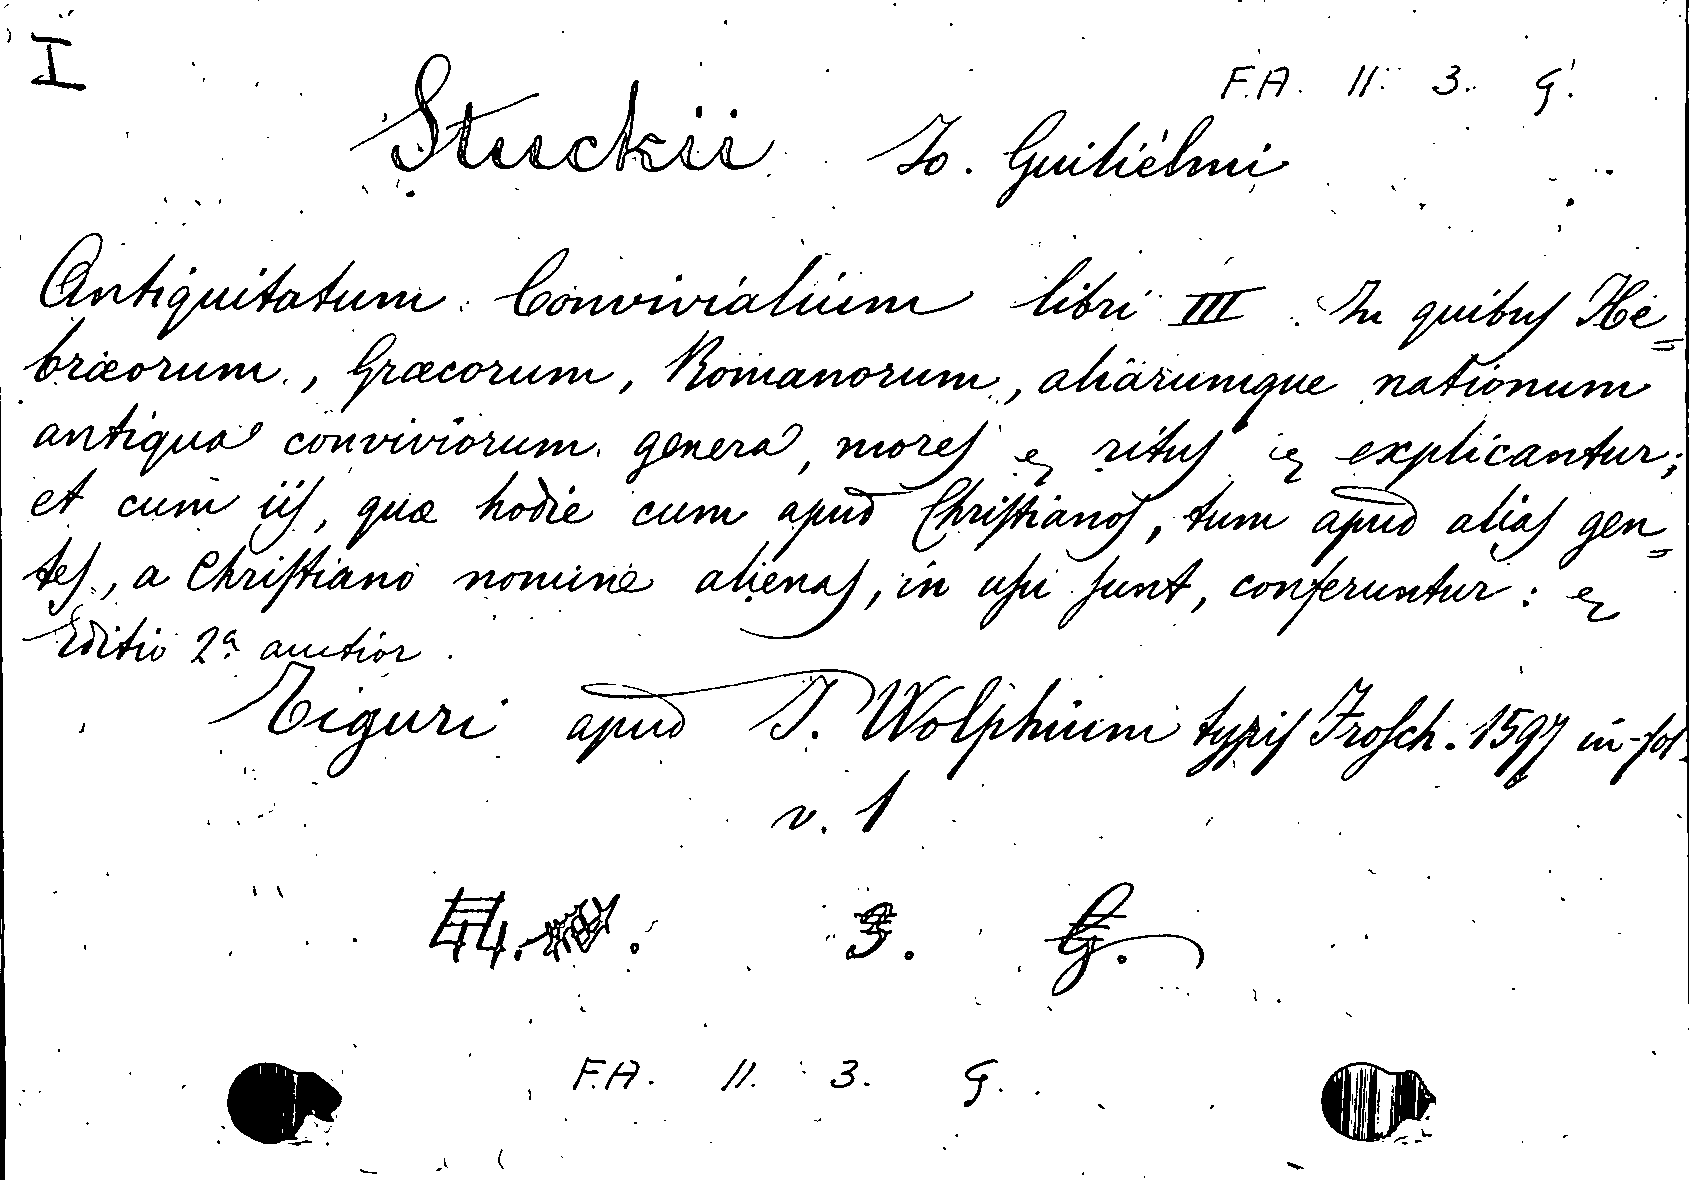 I
F.A. 11. 3. G.
Stuckii Jo. Guilielmi
Antiquitatum Convivialium libri III. In quibus He=
bræorum, Græcorum, Romanorum, aliarumque nationum
antiqua conviviorum genera, mores & ritus & explicantur;
et cum iis, quæ hodie cum apud Christianos, tum apud alias gen=
tes, a Christiano nomine alienas, in usu sunt, conferuntur: &
Editio 2a auctior.
Tiguri apud J. Wolphium typis Frosch. 1597 in-fol.
v. 1
3. G.
F.A. 11. 3. G.